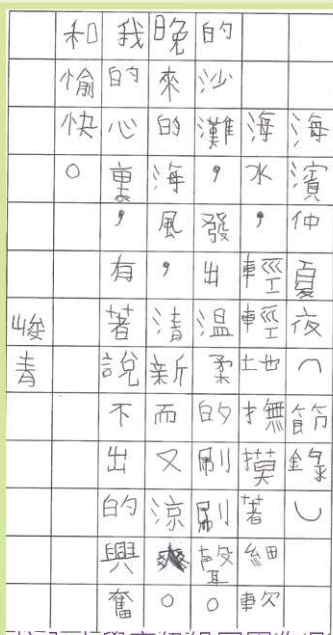 海濱仲夏夜（節錄）
海水，輕輕地撫摸著細軟
的沙灘，發出溫柔的刷刷聲。
晚來的海風，清新而又涼爽。
我的心裏，有著說不出的興奮
和愉快。
峻青